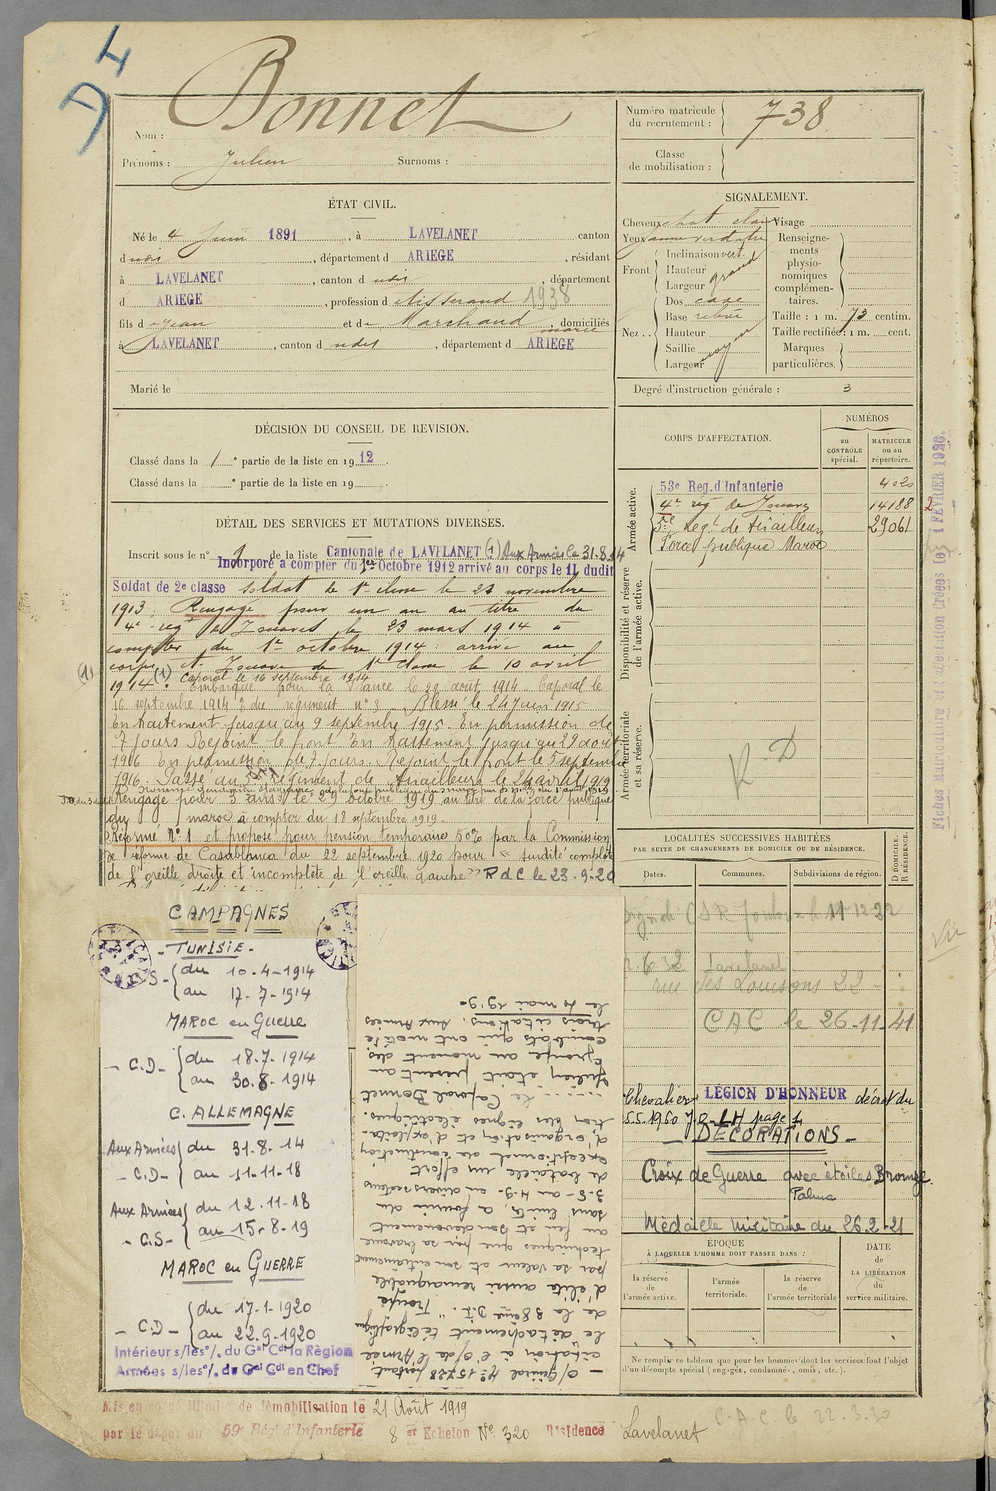 A 4
Bonnet
Nom :
Prénoms : Julien Surnoms :
Numéro matricule du recrutement : 738
Classe de mobilisation :
ÉTAT CIVIL.
Né le 4 Juin 1891, à LAVELANET canton
dudit, département d ARIEGE, résidant
à LAVELANET, canton d udit, département
d ARIEGE, profession d Tisserand 1938
fils d Jean et d Marchand, domiciliés
à LAVELANET, canton d udit, département d ARIEGE
Marié le
SIGNALEMENT.
Cheveux chat. clair Visage
Yeux
Front
Inclinaison vert.
Hauteur
Largeur grand
Nez
Dos cave
Base relevée
Hauteur
Saillie
Largeur moyen
Renseignements physionomiques complémentaires.
Taille : 1 m. 73 centim.
Taille rectifiée : 1 m. cent.
Marques particulières.
Degré d'instruction générale : 3
DÉCISION DU CONSEIL DE REVISION.
Classé dans la 1re partie de la liste en 1912.
Classé dans la e partie de la liste en 19
CORPS D'AFFECTATION.
NUMÉROS
au CONTRÔLE spécial.
MATRICULE ou au répertoire.
Armée active.
53e Reg. d'Infanterie 4020
4e rég de Zouaves 14188
5e Regt de Tirailleurs 29061
Force publique Maroc
Disponibilité et réserve de l'armée active.
Armée territoriale et sa réserve.
R D
DÉTAIL DES SERVICES ET MUTATIONS DIVERSES.
Inscrit sous le n° 9 de la liste Cantonale de LAVELANET (1) Aux Armées le 31.8.14
Incorporé à compter du 1er Octobre 1912 arrivé au corps le 11 dudit
Soldat de 2e classe soldat de 1e classe le 23 novembre
1913. Rengagé pour un an au titre du
4e rég de Zouaves le 23 mars 1914 à
compter du 1er octobre 1914 : arrivé au
corps et Zouave de 1e classe le 10 avril
1914. (1) Caporal le 16 septembre 1914
Embarqué pour la France le 29 août 1914. Caporal le
16 septembre 1914 O. du régiment n° 3. Blessé le 24 juin 1915
En traitement jusqu'au 9 septembre 1915. En permission de
7 jours Rejoint le front En traitement jusqu'au 29 août
1916 En permission de 7 jours. Rejoint le front le 5 septembre
1916. Passé au 5e régiment de Tirailleurs le 24 avril 1919
Rengagé pour 3 ans le 29 octobre 1919 au titre de la force publique
du maroc à compter du 18 septembre 1919.
Réformé N° 1 et proposé pour pension temporaire 50% par la Commission
de réforme de Casablanca du 22 septembre 1920 pour « surdité complète
de l'oreille droite et incomplète de l'oreille gauche » R d C le 23.9.20
LOCALITÉS SUCCESSIVES HABITÉES
PAR SUITE DE CHANGEMENTS DE DOMICILE OU DE RÉSIDENCE.
Dates. Communes. Subdivisions de région. D DOMICILE. R RÉSIDENCE.
11-12-22
Lavelanet
rue des 22
CAC le 26-11-41
Chevalier LÉGION D'HONNEUR décret du
5.5.1960 J.O. LH page 4
- DÉCORATIONS -
Croix de Guerre avec étoiles Bronze
Palme
Médaille Militaire du 26.2.21
ÉPOQUE
À LAQUELLE L'HOMME DOIT PASSER DANS :
la réserve de l'armée active.
l'armée territoriale.
la réserve de l'armée territoriale
DATE de LA LIBÉRATION du service militaire.
Ne remplir ce tableau que pour les hommes dont les services font l'objet
d'un décompte spécial (engagés, condamnés, omis, etc.).
CAMPAGNES
- TUNISIE -
- S - du 10-4-1914
au 17-7-1914
MAROC en Guerre
- C.D - du 18.7.1914
au 30.8.1914
C. ALLEMAGNE
Aux Armées du 31.8.14
- C.D - au 11-11-18
Aux Armées du 12.11-18
- C.S - au 15-8-19
MAROC en GUERRE
- C.D - du 17-1-1920
au 22.9-1920
Intérieur s/les °/. du Gal Cdt la Région
Armées s/les °/. du Gal Cdt en Chef
- O/ Général N° 15728 portant
citation à l'O/ de l'Armée
le détachement télégraphique
de la 38ème D.I. " Troupe
d'élite aussi remarquable
par sa valeur et son entrainement
techniques que par sa bravoure
au feu et son dévouement
sans limite, a fourni du
3-8- au 4.9. en divers secteurs
de bataille, un effort
exceptionnel de construction,
d'organisation et d'exploita-
tion des lignes électriques.
..... Le Caporal Bonnet
Julien était présent au
groupe au moment des
combats qui ont motivé
trois citations. Aux Armées
le 4 mai 1919.
Mis en congé illimité de démobilisation le 21 Août 1919
par le dépôt du 59e Régt d'Infanterie 8 er Echelon No 320 Résidence Lavelanet
C.A.C le 22.3.30
Fiches Matriculaire et d'affectation Créées le 1 FEVRIER 1920.